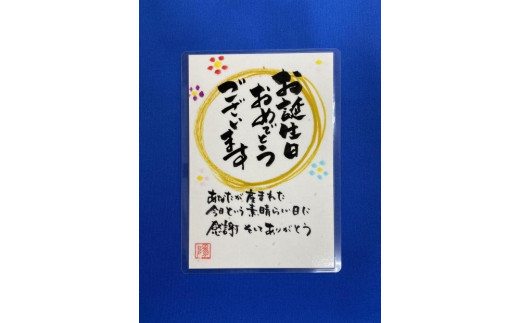 お誕生日
おめでとう
ございます
あなたが産まれた
今日という素晴らしい日に
感謝をしてありがとう